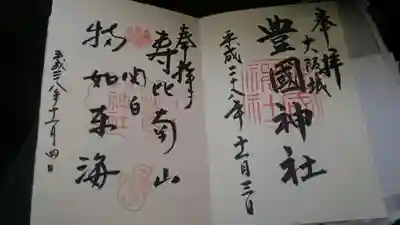 奉拝
大阪城
豊國神社
平成二八年十一月三日
奉拝
寿比南山
関白
物如東海
平成二八年十一月四日